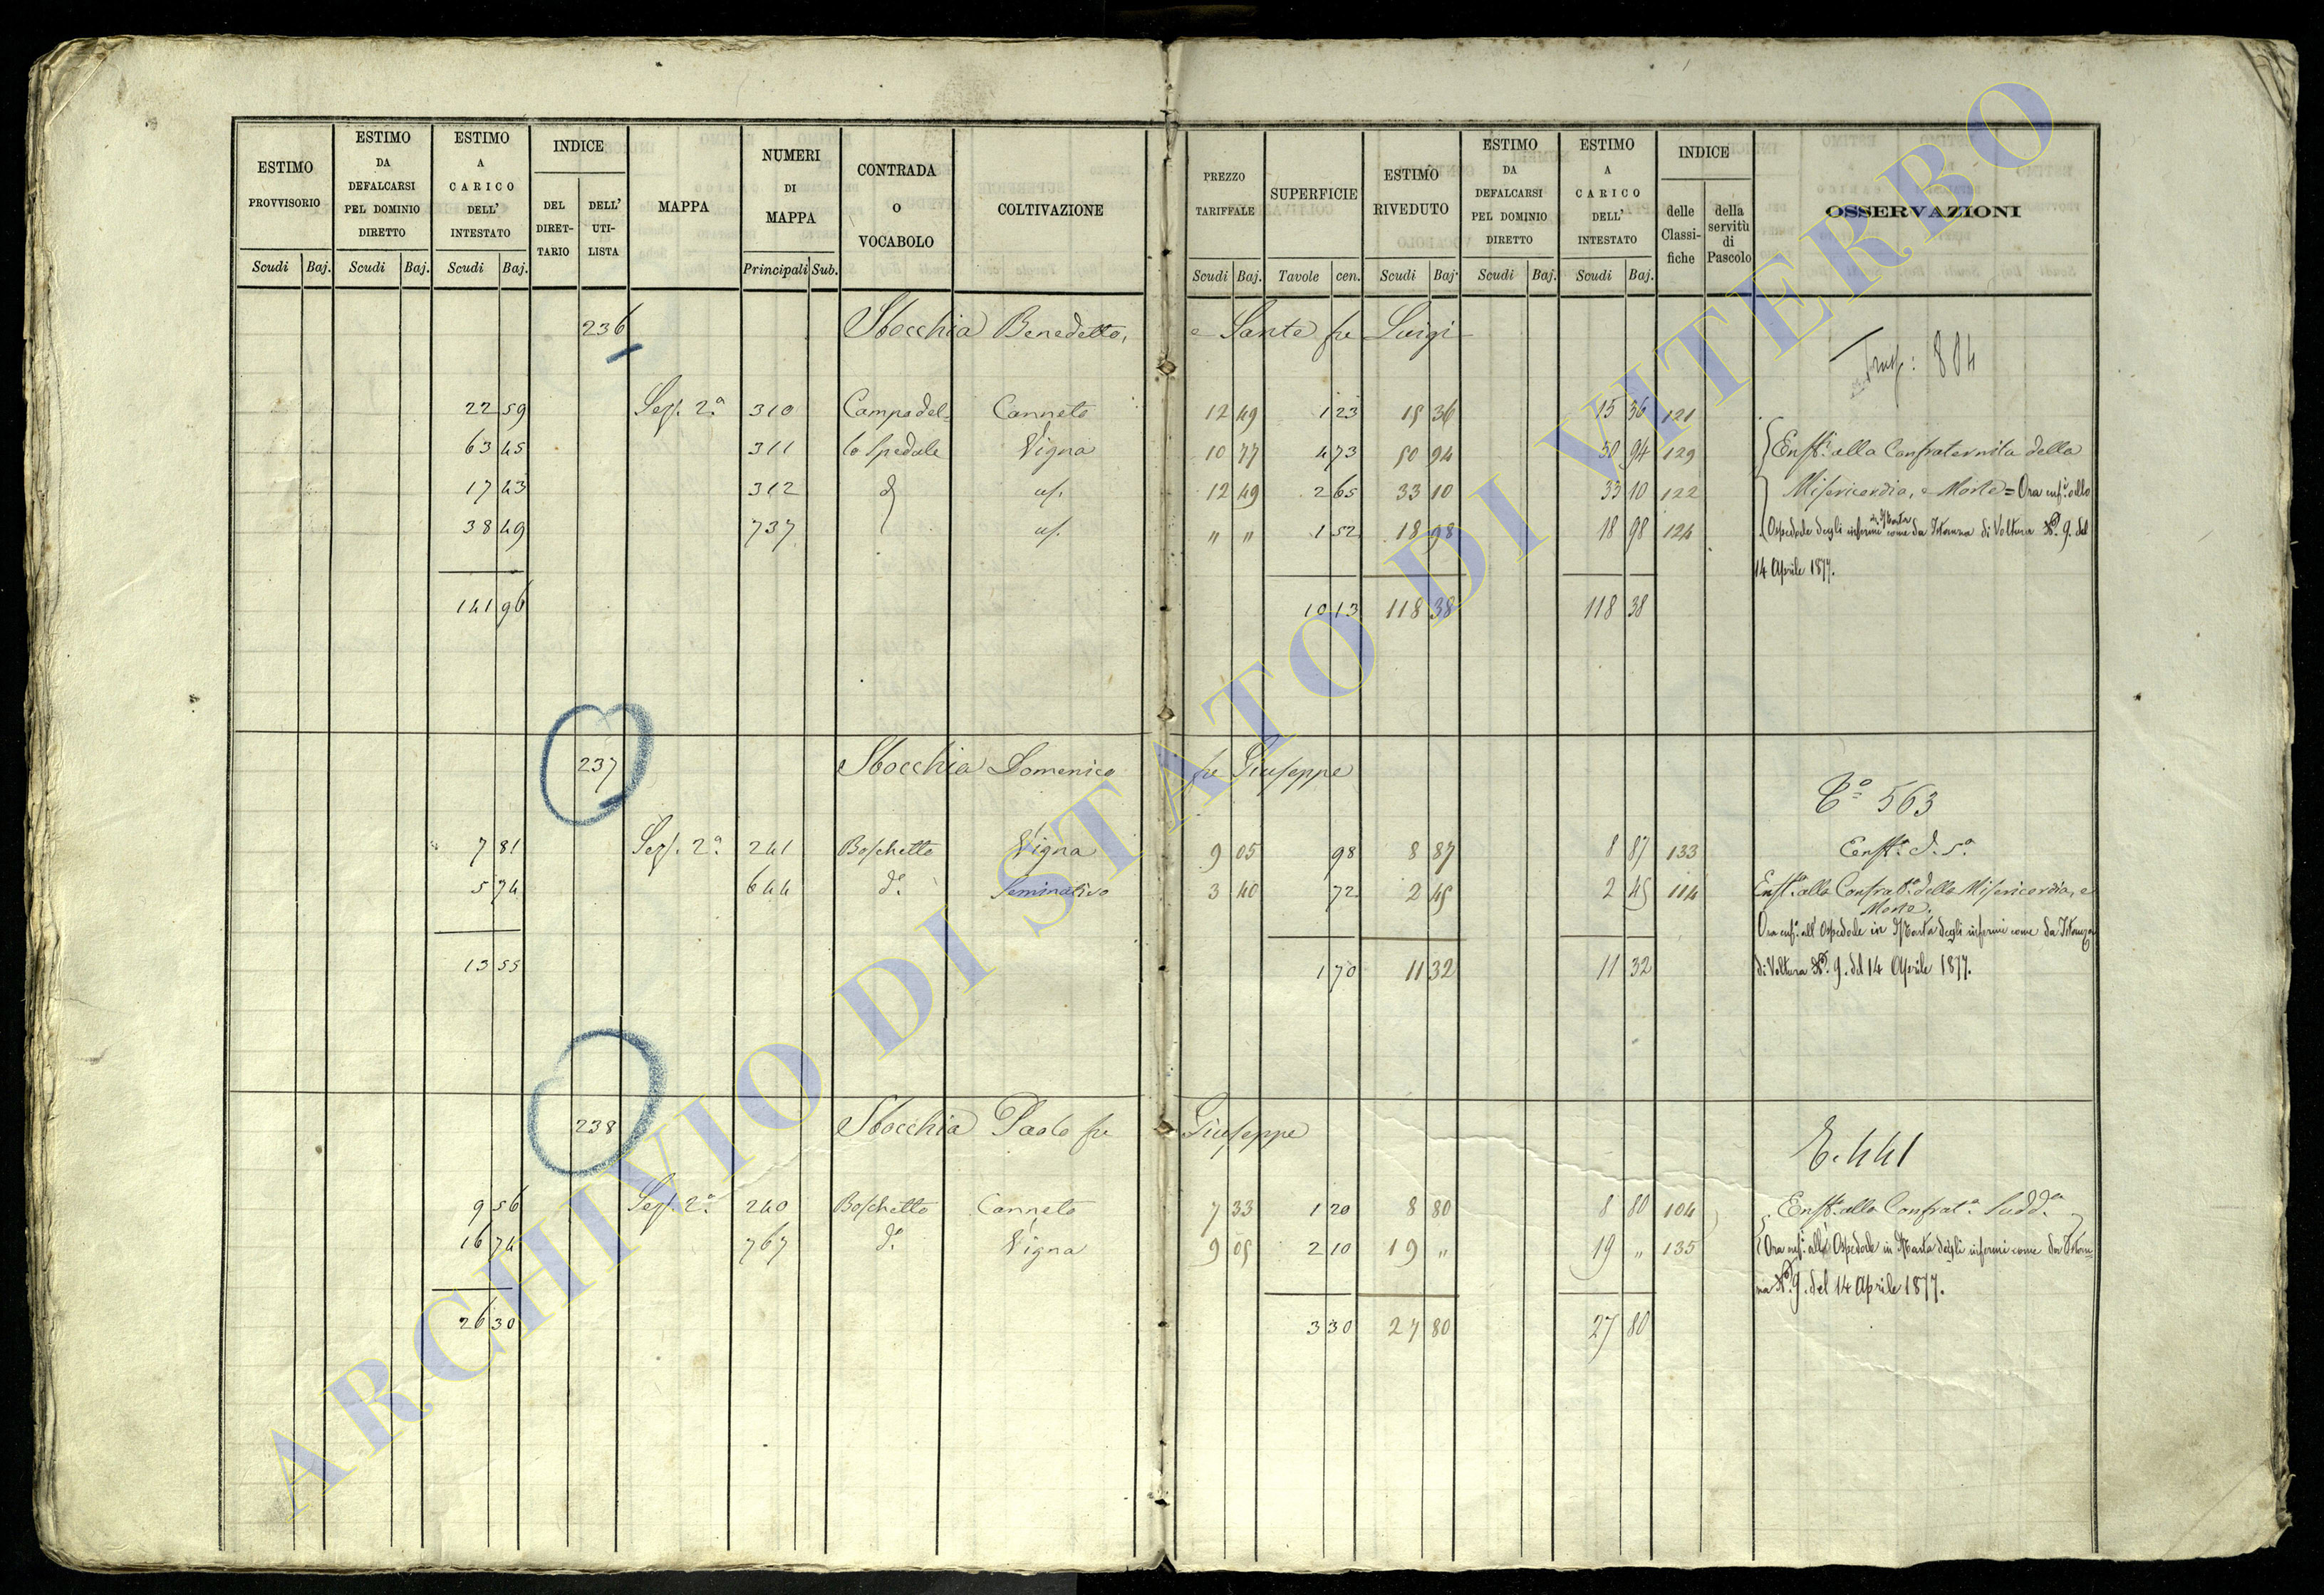 ESTIMO PROVVISORIO
ESTIMO DA DEFALCARSI PEL DOMINIO DIRETTO
ESTIMO A CARICO DELL' INTESTATO
INDICE
DEL DIRET-TARIO
DELL' UTI-LISTA
MAPPA
NUMERI DI MAPPA
CONTRADA O VOCABOLO
COLTIVAZIONE
PREZZO TARIFFALE
SUPERFICIE
ESTIMO RIVEDUTO
ESTIMO DA DEFALCARSI PEL DOMINIO DIRETTO
ESTIMO A CARICO DELL' INTESTATO
INDICE
delle Classi-fiche
della servitù di Pascolo
OSSERVAZIONI
Scudi Baj. Scudi Baj. Scudi Baj. Principali Sub. Scudi Baj. Tavole cen. Scudi Baj. Scudi Baj. Scudi Baj.
236 Stocchia Benedetto, e Sante fu Luigi
804
22 59 Sez. 2ª 310 Campo del Canneto 12 49 1 23 15 36 15 36 121
63 45 311 lo Spedale Vigna 10 77 4 73 50 94 50 94 129 Enft. alla Confraternita della
17 43 312 d uf. 12 49 2 65 33 10 33 10 122 Misericordia, e Morte = Ora enf. allo
38 49 737 uf. " " 1 52 18 98 18 98 124 Ospedale degli infermi in Marta come da Istanza di Voltura N. 9. del
14 Aprile 1877.
141 96 10 13 118 38 118 38
237 Stocchia Domenico fu Giuseppe
563
7 81 Sez. 2ª 241 Boschetto Vigna 9 05 98 8 87 8 87 133 Enft. d. sª
5 74 644 dº Seminativo 3 40 72 2 45 2 45 114 Enft. alla Confratª della Misericordia, e
Morte.
Ora enf. all' Ospedale in Marta degli infermi come da Istanza
13 55 1 70 11 32 11 32 di Voltura N. 9. del 14 Aprile 1877.
238 Stocchia Paolo fu Giuseppe
E. 441
9 56 Sez. 2ª 240 Boschetto Canneto 7 33 1 20 8 80 8 80 104 Enft. alla Confratª Suddª
16 74 767 dº Vigna 9 05 2 10 19 " 19 " 135 Ora enf. all' Ospedale in Marta degli infermi come da Istan=
za N. 9. del 14 Aprile 1877.
26 30 3 30 27 80 27 80
ARCHIVIO DI STATO DI VITERBO